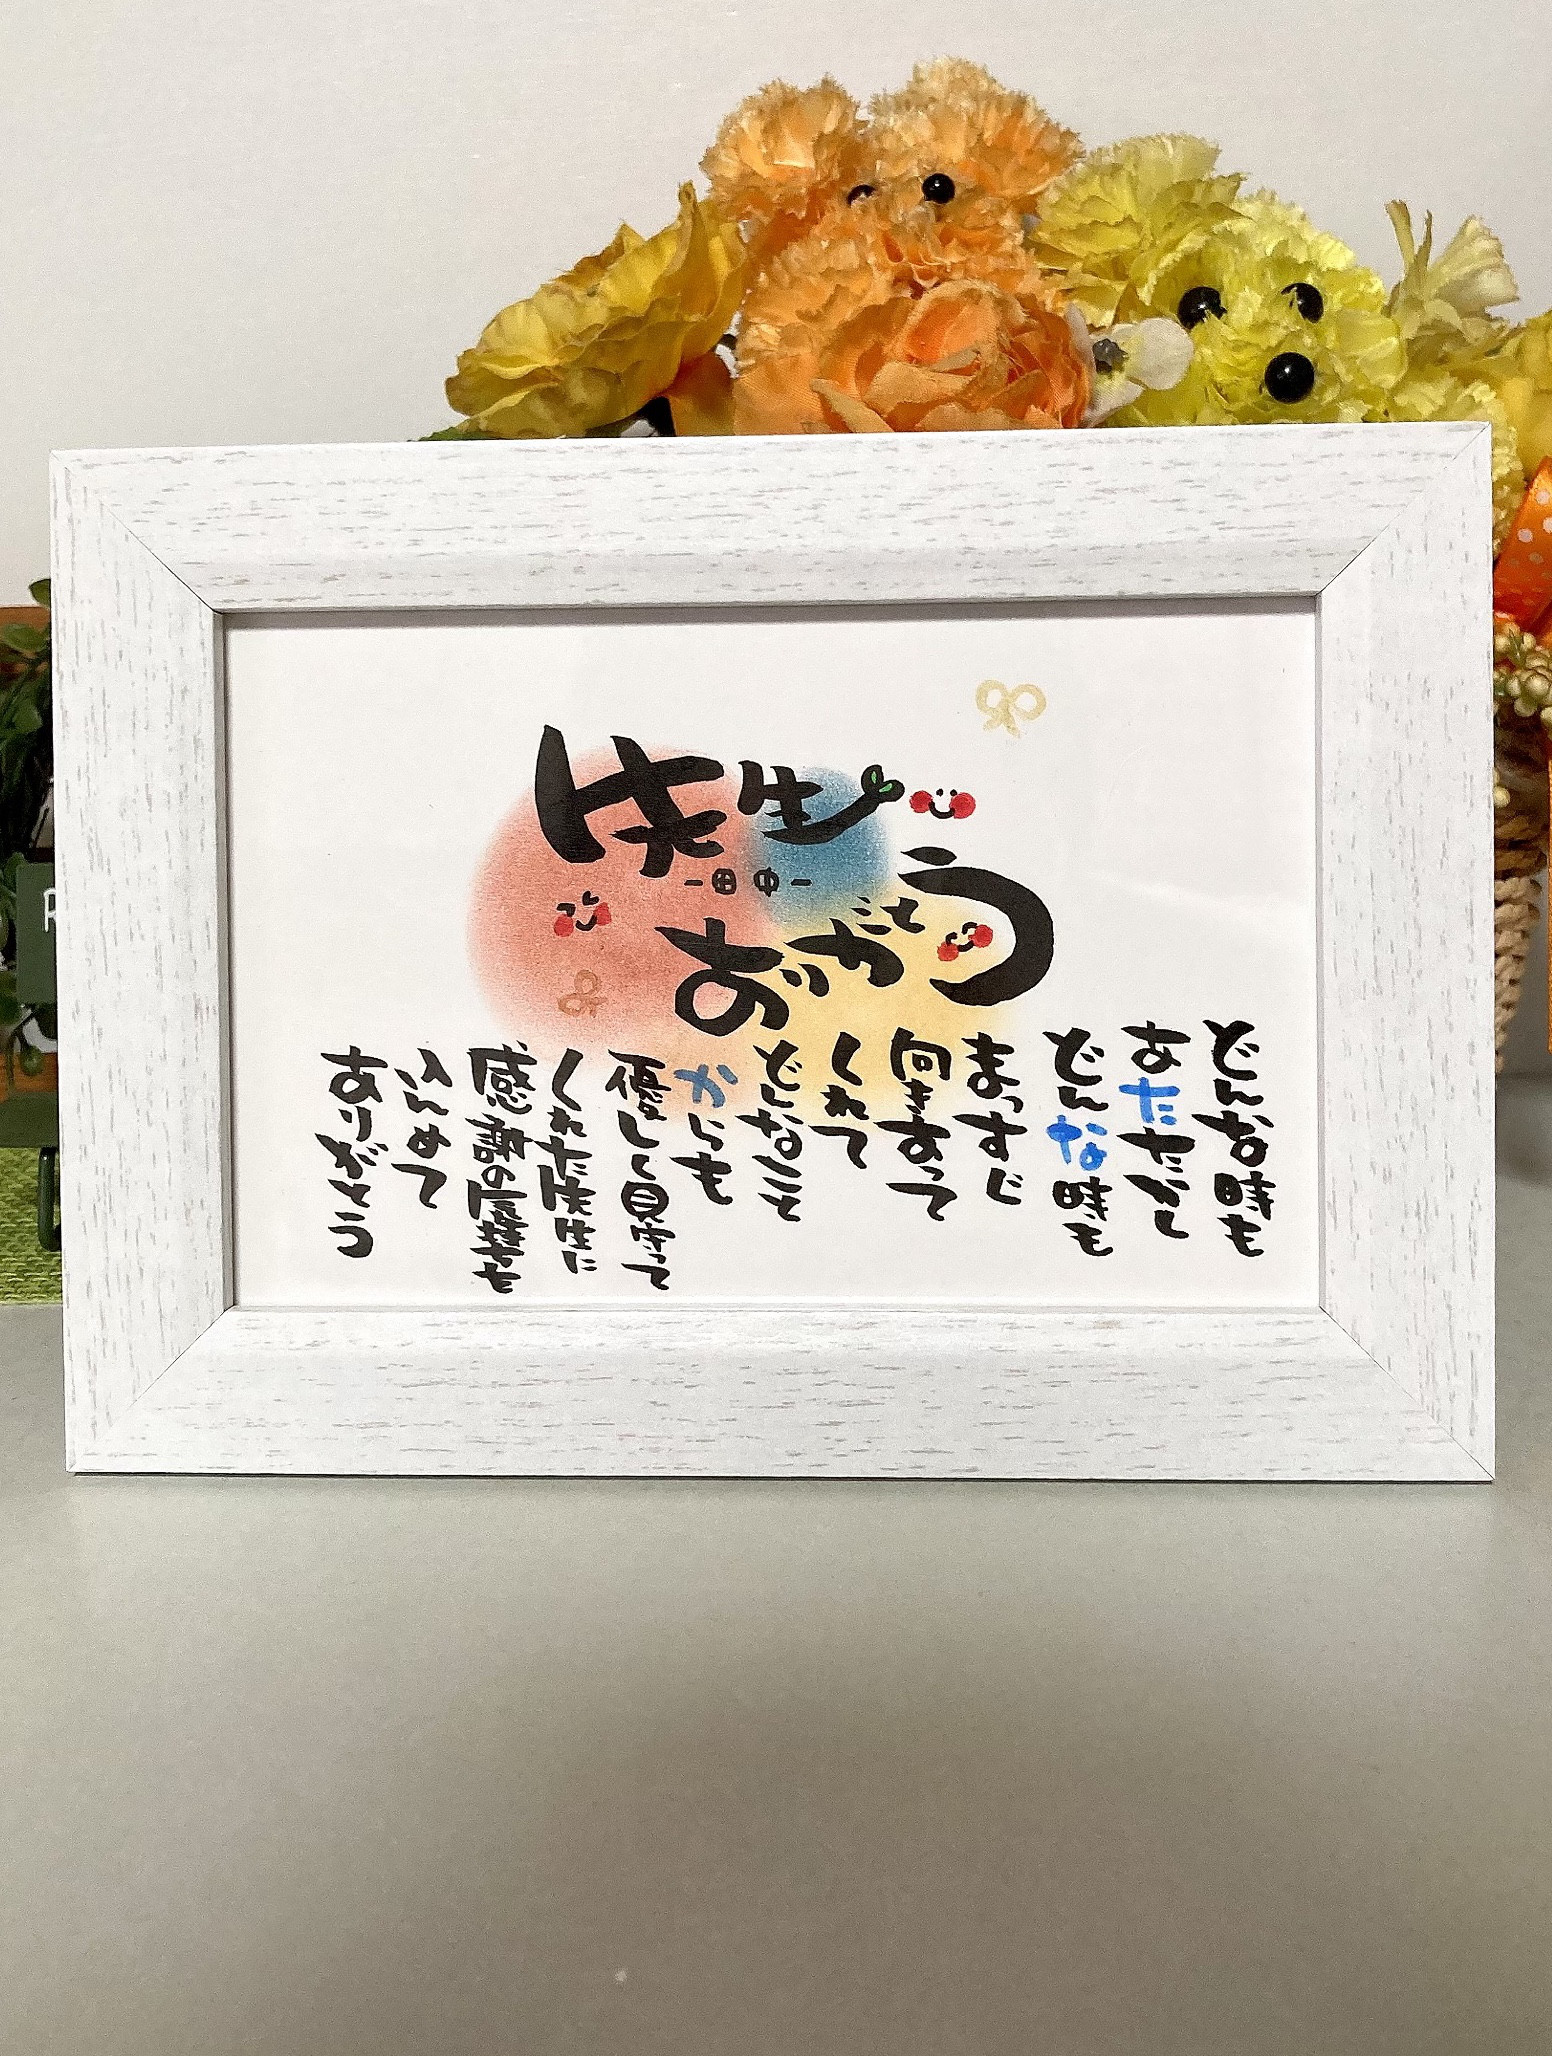 先生
-田中-
ありがとう
どんな時も
あたたかく
どんな時も
まっすぐ
向きあって
くれて
どんなこと
からも
優しく見守って
くれた先生に
感謝の気持を
込めて
ありがとう